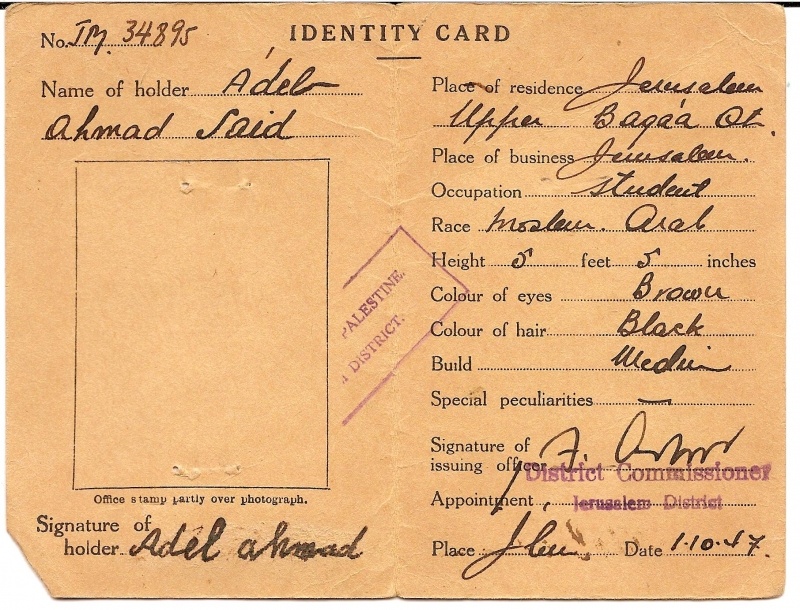 IDENTITY CARD
No. JM. 34895
Name of holder Adel
Ahmad Said
Office stamp partly over photograph.
Signature of
holder Adel ahmad
PALESTINE.
DISTRICT.
Place of residence Jerusalem
Upper Baqa'a Qt.
Place of business Jerusalem.
Occupation student
Race Moslem. Arab
Height 5 feet 5 inches
Colour of eyes Brown
Colour of hair Black
Build Medium
Special peculiarities —
Signature of
issuing officer
District Commissioner
Appointment
Jerusalem District
Place J'lem Date 1.10.47.